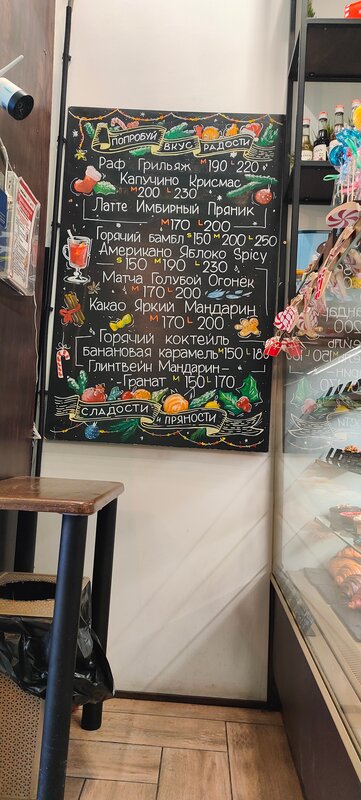 ПОПРОБУЙ ВКУС РАДОСТИ
Раф Грильяж М190 L220
Капучино Крисмас
М200 L230
Латте Имбирный Пряник
М170 L200
Горячий бамбл S150 М200 L250
Американо Яблоко Spicy
S150 М190 L230
Матча Голубой Огонёк
М170 L200
Какао Яркий Мандарин
М170 L200
Горячий коктейль
банановая карамель М150 L18
Глинтвейн Мандарин-
Гранат М150 L170
СЛАДОСТИ и ПРЯНОСТИ